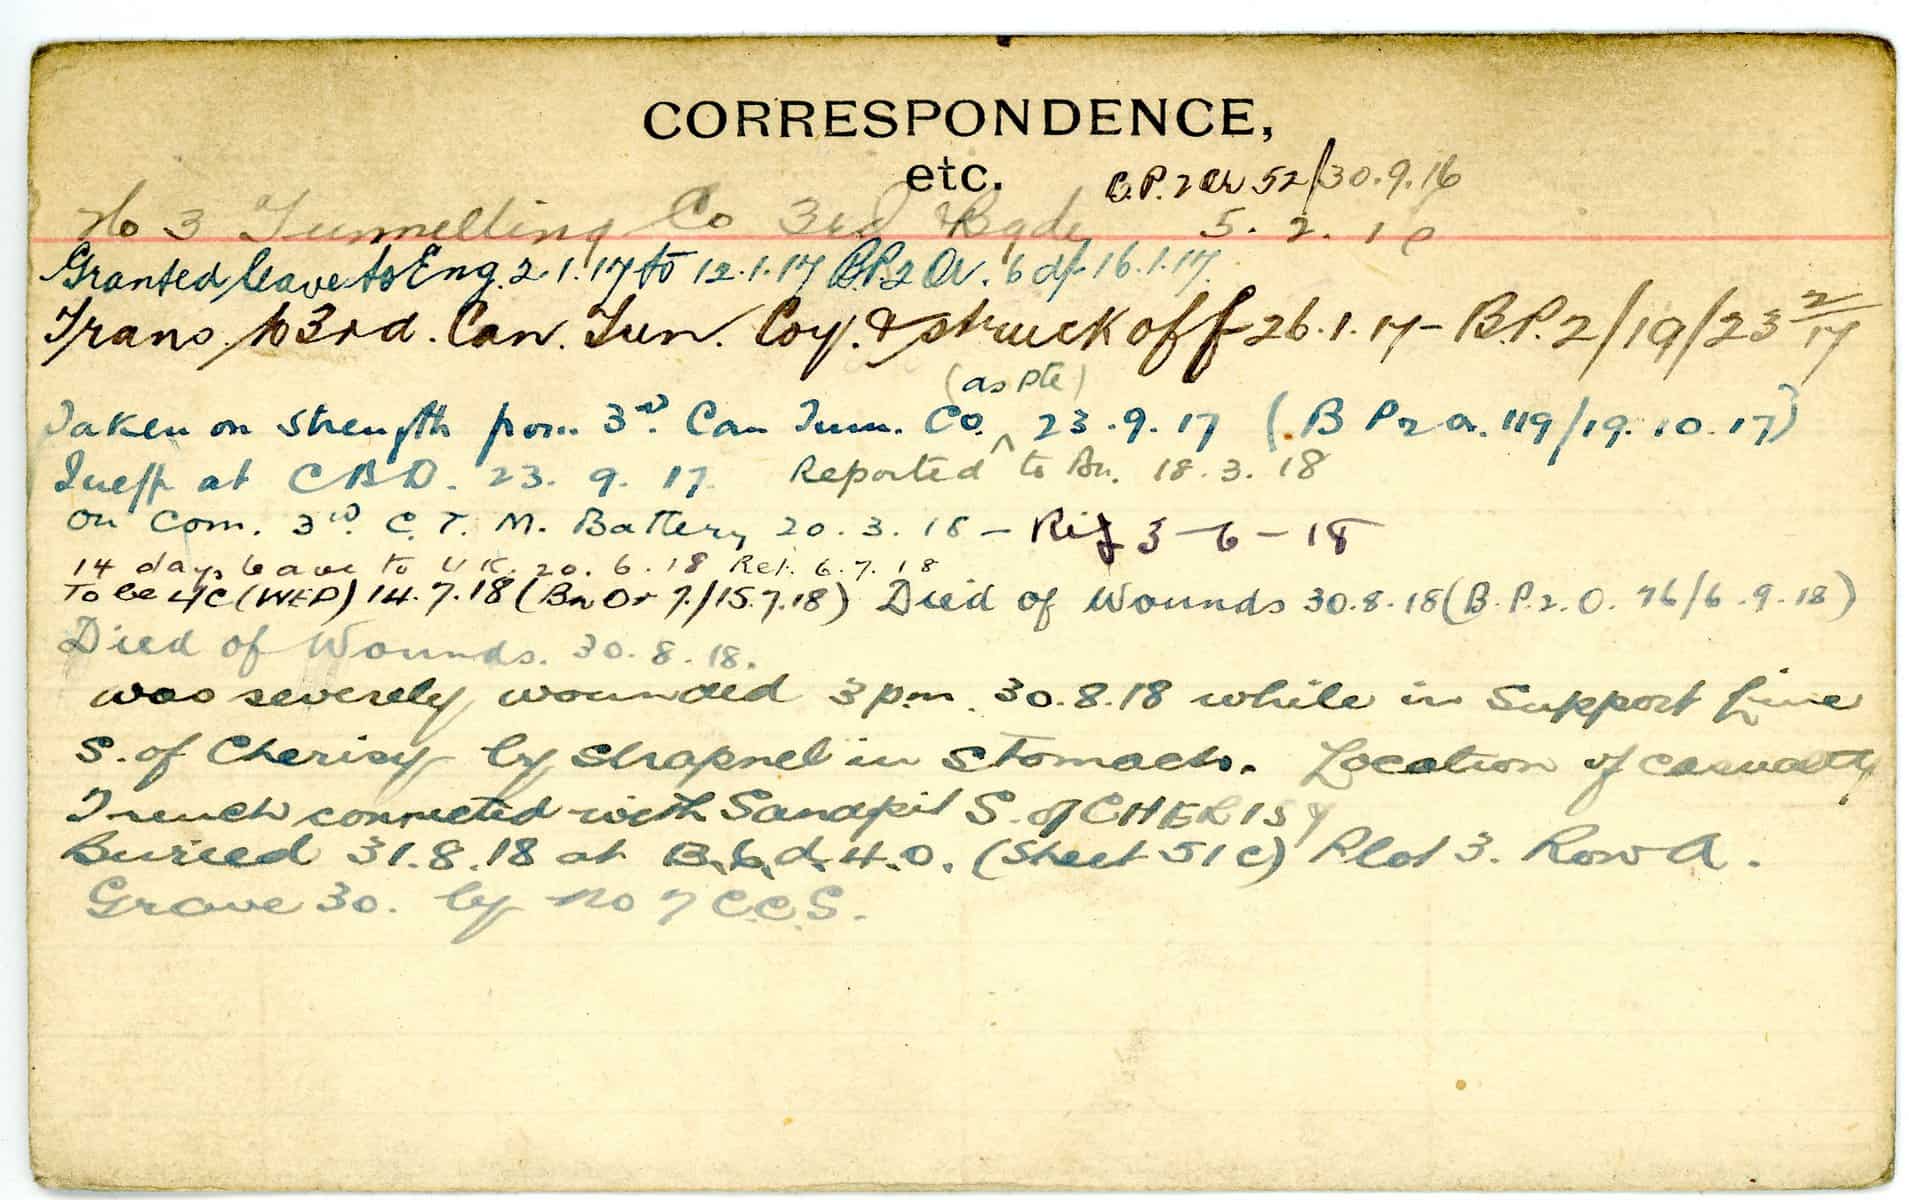 CORRESPONDENCE,
etc. B.P. 2 Or 52/30.9.16
No 3 Tunnelling Co 3rd Bgde 5.2.16
Granted leave to Eng. 2.1.17 to 12.1.17 B.P.2 Or. 6 d/ 16.1.17
Trans. to 3rd. Can. Tun. Coy. & struck off 26.1.17 - B.P.2/19/23 2/17
(as Pte)
Taken on strength from 3rd. Can Tunn. Co. ^ 23.9.17 (B P 2 O. 119/19.10.17)
Ineff at CBD. 23.9.17 Reported to Bn. 18.3.18
On Com. 3rd C.T.M. Battery 20.3.18 - Rej 3-6-18
14 days leave to UK. 20.6.18 Ret. 6.7.18
To be L/C (WEP) 14.7.18 (Bn Or 7./15.7.18) Died of Wounds 30.8.18 (B.P.2.O. 76/6.9.18)
Died of Wounds. 30.8.18.
was severely wounded 3 pm. 30.8.18 while in Support Line
S. of Cherisy by shrapnel in stomach. Location of casualty
Trench connected with Sandpit S. of CHERISY
Buried 31.8.18 at B.6.d.4.0. (Sheet 51c) Plot 3. Row A.
Grave 30. by No 7 C.C.S.